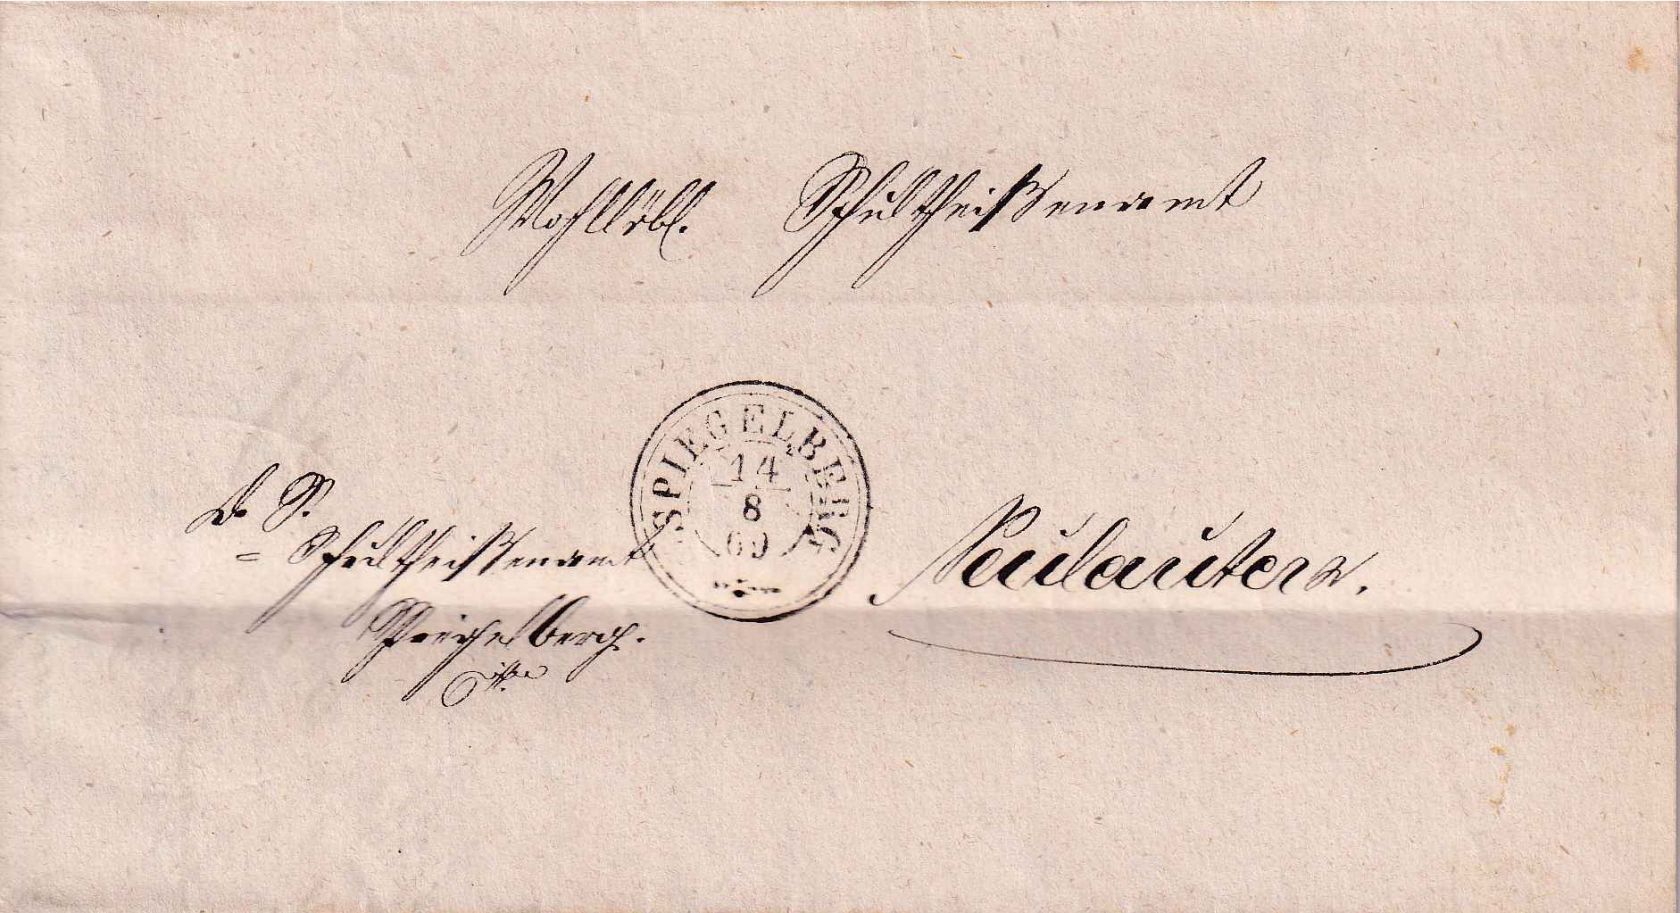 Wohllöbl. Schultheißenamt
SPIEGELBERG
14
8
69
D. S.
= Schultheißenamt
Spiegelberg.
Neulautern.